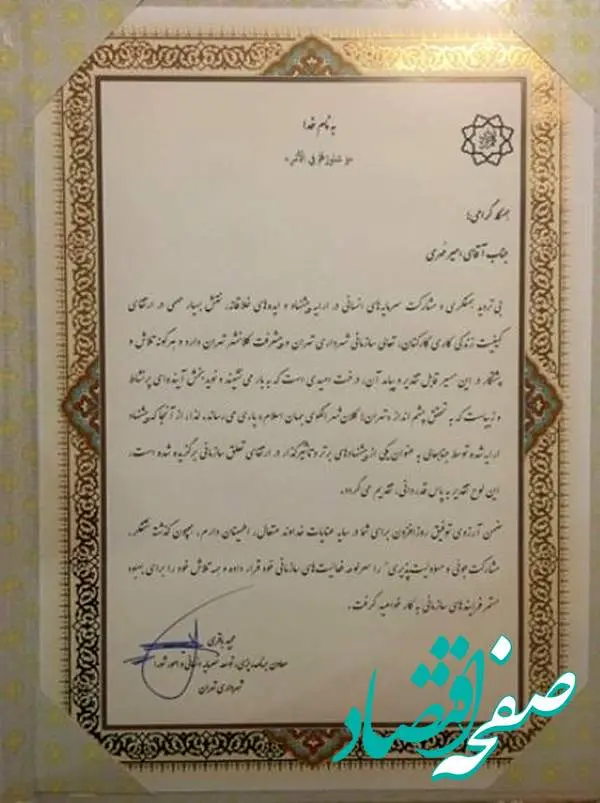 به نام خدا
«و شاورهم فی الامر»
همکار گرامی؛
جناب آقای امیر مُهری
بی تردید همفکری و مشارکت سرمایه‌های انسانی در ارایه پیشنهاد و ایده‌های خلاقانه، نقش بسیار مهمی در ارتقای
کیفیت زندگی کاری کارکنان، تعالی سازمانی شهرداری تهران و پیشرفت کلانشهر تهران دارد و هرگونه تلاش و
پشتکار در این مسیر قابل تقدیر و پیامد آن، درخت امیدی است که به بار می نشیند و نوید بخش آینده‌ای پر نشاط
و زیباست که به تحقق چشم انداز «تهران؛ کلان شهر الگوی جهان اسلام» یاری می‌رساند، لذا، از آنجا که پیشنهاد
ارایه شده توسط جنابعالی به عنوان یکی از پیشنهادهای برتر و تاثیرگذار در ارتقای تعلق سازمانی برگزیده شده است،
این لوح تقدیر به پاس قدردانی، تقدیم می گردد.
ضمن آرزوی توفیق روزافزون برای شما در سایه عنایات خداوند متعال، اطمینان دارم، همچون گذشته تفکر،
مشارکت جوئی و مسئولیت‌پذیری" را سرلوحه فعالیت‌های سازمانی خود قرار داده و همه تلاش خود را برای بهبود
مستمر فرایندهای سازمانی به کار خواهید گرفت.
باقری
معاون برنامه‌ریزی، توسعه سرمایه انسانی و امور شورا
شهرداری تهران
صفحه اقتصاد